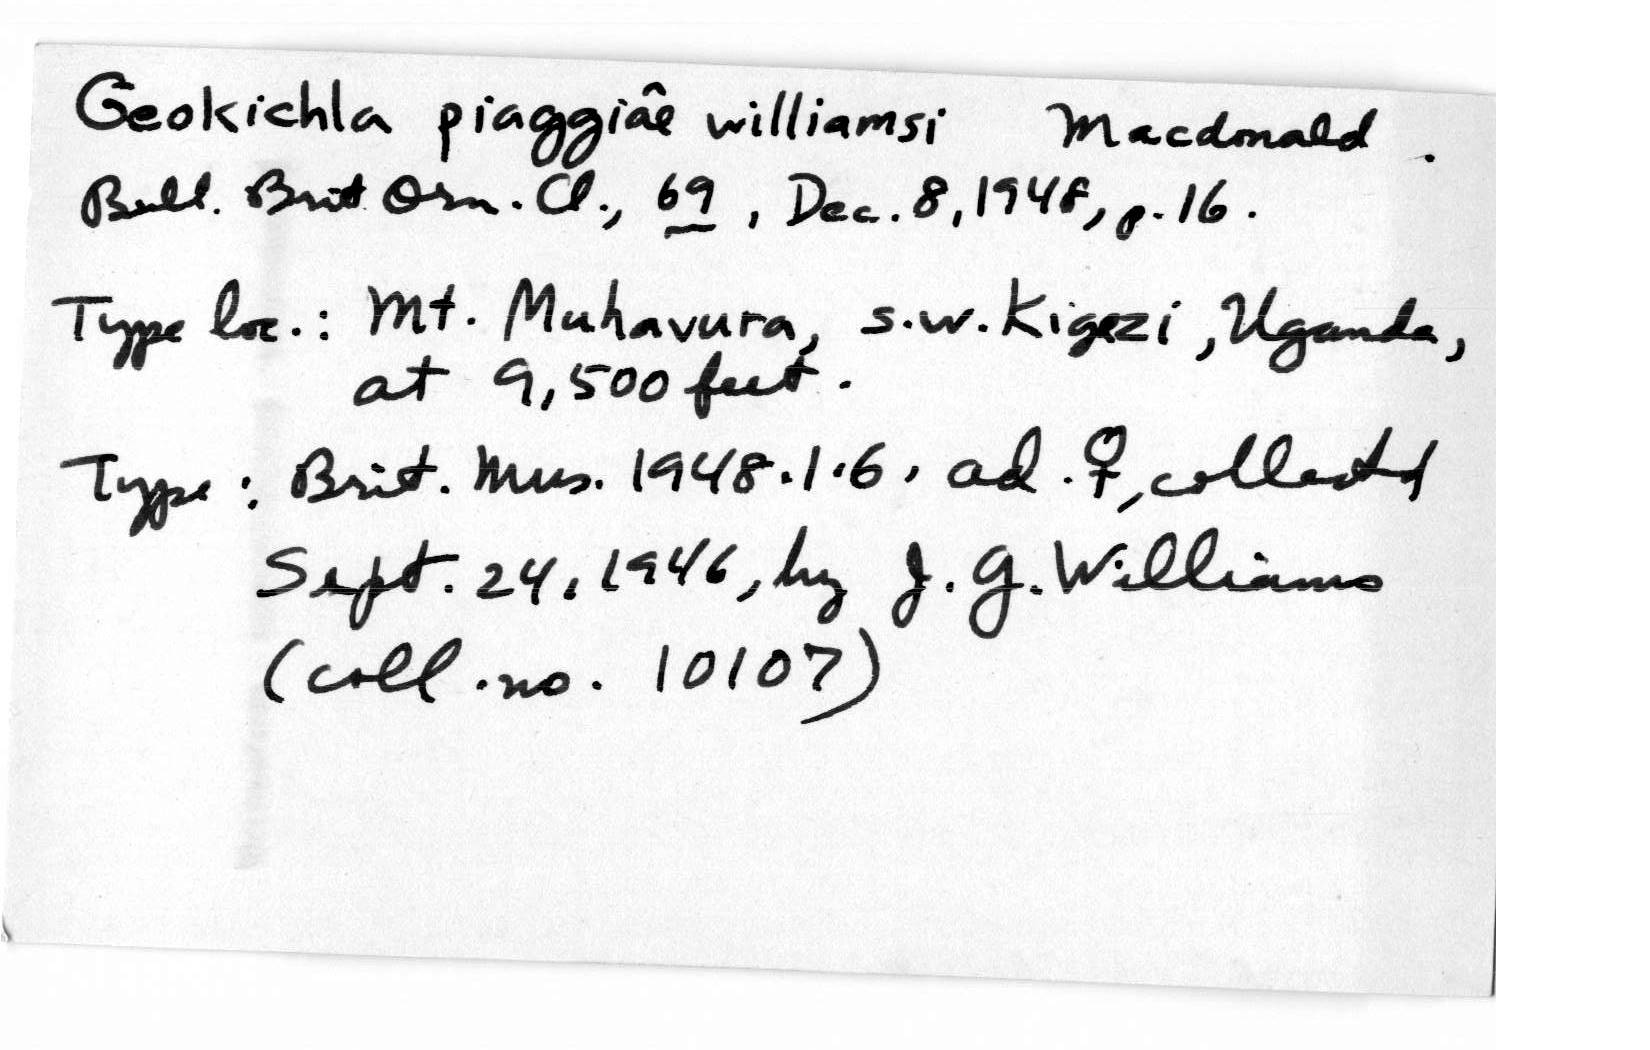 Geokichla piaggiâe williamsi Macdonald.
Bull. Brit Orn. Cl., 69, Dec. 8, 1948, p. 16.
Type loc.: Mt. Muhavura, s.w. Kigezi, Uganda,
at 9,500 feet.
Type: Brit. Mus. 1948.1.6, ad. ♀, collected
Sept. 24, 1946, by J. G. Williams
(coll. no. 10107)